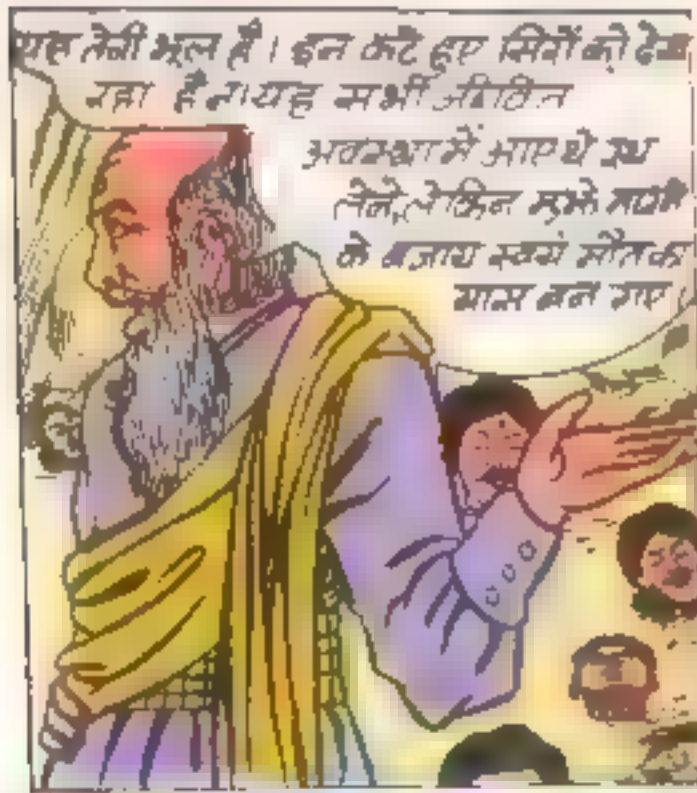 यह तेरी भूल है। इन कटे हुए सिरों को देख
रहा है न। यह सभी जीवित
अवस्था में आए थे
लेने, लेकिन मुझे
के बजाय स्वयं मौत का
ग्रास बन गए।